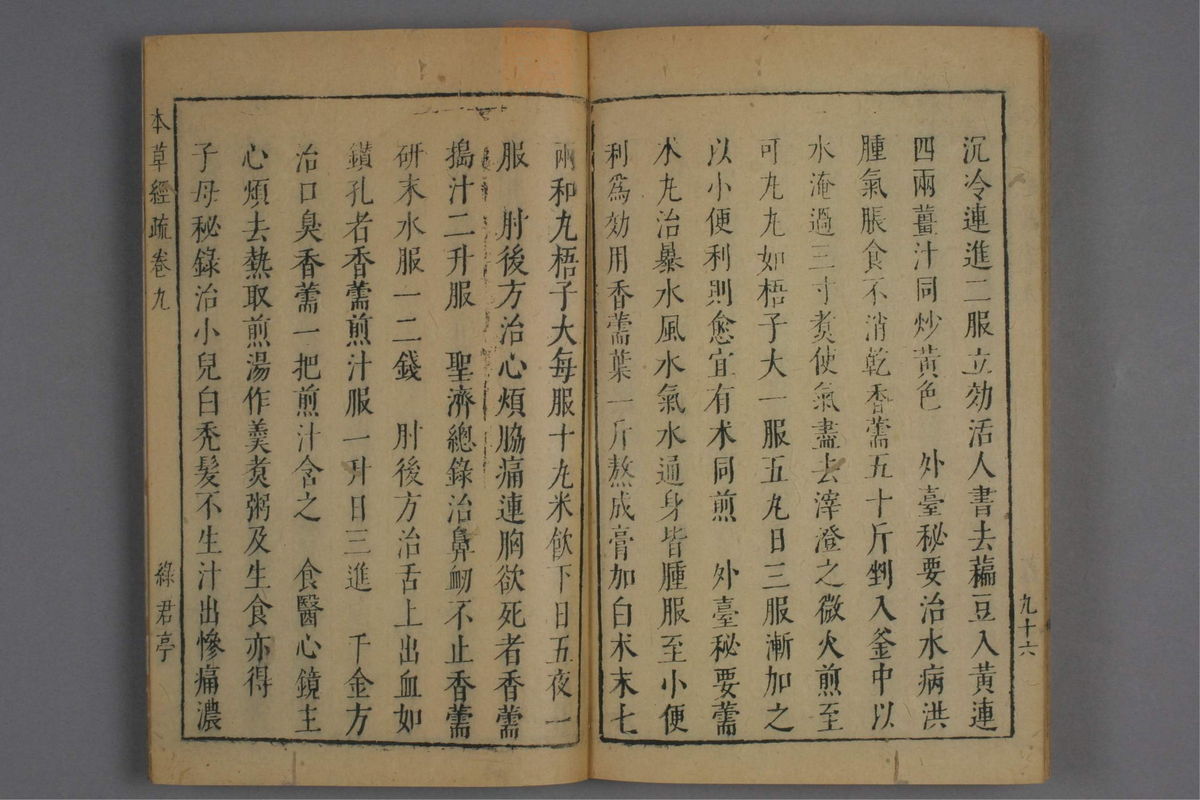 沉冷連進二服立効活人書去藊豆入黃連
四兩薑汁同炒黃色　外臺秘要治水病洪
腫氣脹食不消乾香薷五十斤剉入釜中以
水淹過三寸煑使氣盡去滓澄之微火煎至
可丸丸如梧子大一服五丸日三服漸加之
以小便利則愈宜有术同煎　外臺秘要薷
术丸治暴水風水氣水通身皆腫服至小便
利爲効用香薷葉一斤熬成膏加白术末七
九十六
兩和丸梧子大每服十丸米飲下日五夜一
服　肘後方治心煩脇痛連胸欲死者香薷
搗汁二升服　聖濟總錄治鼻衂不止香薷
研末水服一二錢　肘後方治舌上出血如
鑚孔者香薷煎汁服一升日三進　千金方
治口臭香薷一把煎汁含之　食醫心鏡主
心煩去熱取煎湯作羹煑粥及生食亦得
子母秘錄治小兒白禿髮不生汁出慘痛濃
本草經疏卷九
綠君亭